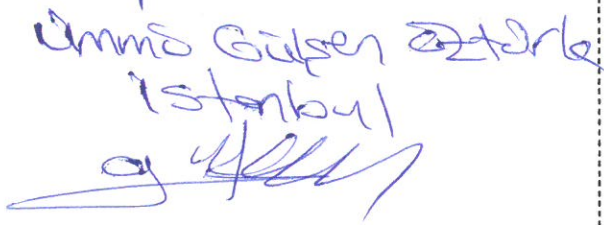 Ümmü Gülşen Öztürk
İstanbul